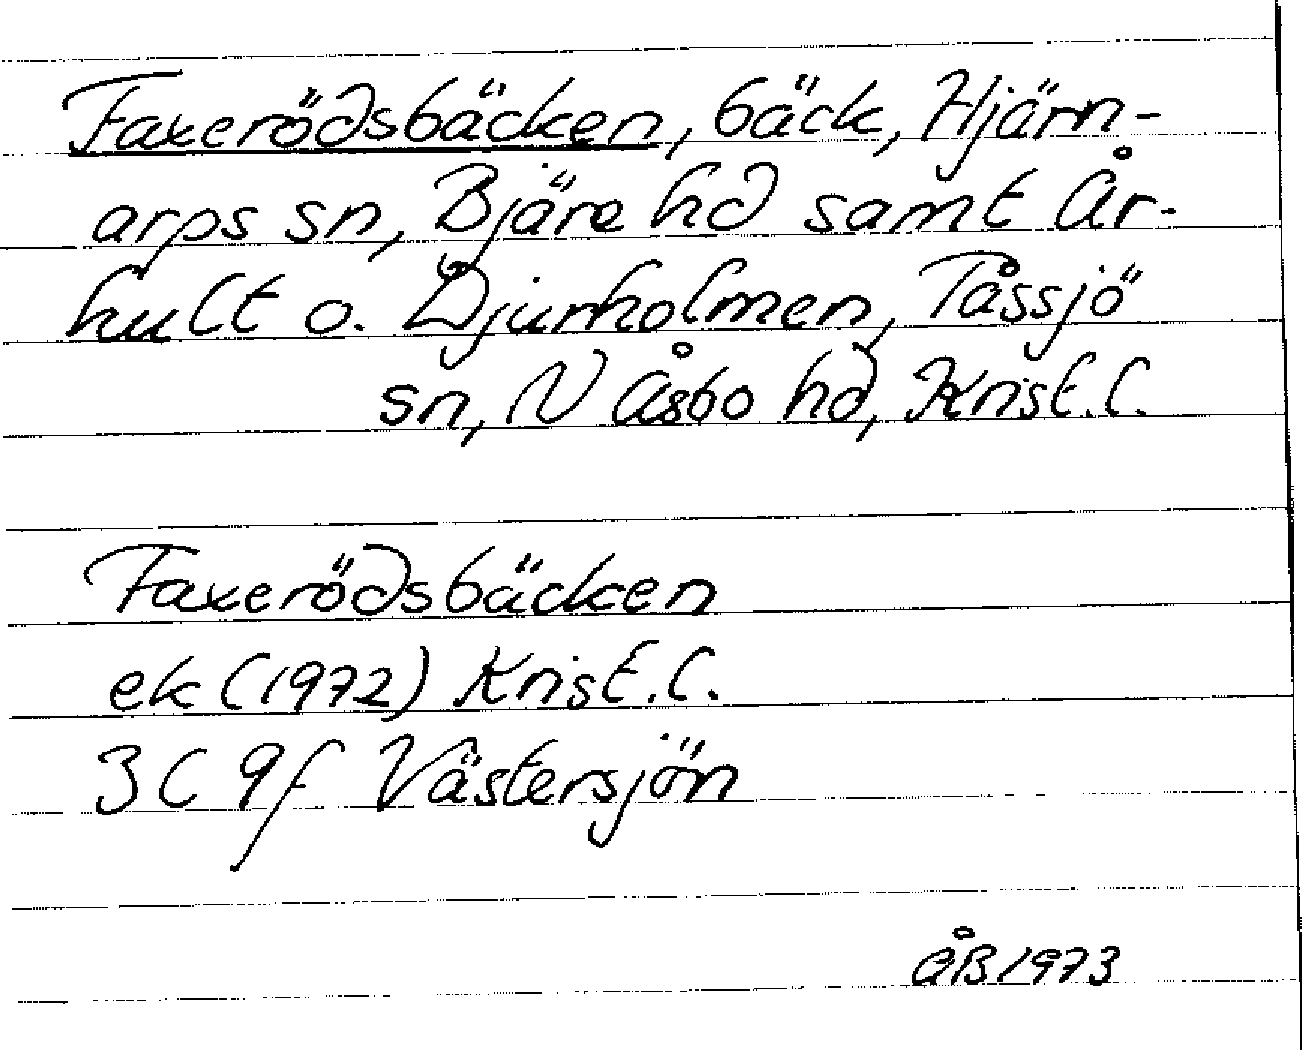 Faxerödsbäcken, bäck, Hjärn-
arps sn, Bjäre hd samt År-
hult o. Djurholmen, Tåssjö
sn, N Åsbo hd, Krist. l.
Faxerödsbäcken
ek (1972) Krist. l.
3C 9f Västersjön
ÅB 1973